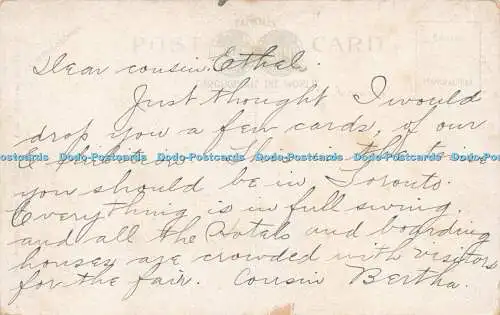 FAMOUS
POST CARD
THROUGHOUT THE WORLD
Dear cousin Ethel.
Just thought I would
drop you a few cards, of our
Exhibition. This is the time
you should be in Toronto.
Everything is in full swing.
and all the Hotels and boarding
houses are crowded with visitors
for the fair. Cousin Bertha.
Dodo-Postcards Dodo-Postcards Dodo-Postcards Dodo-Postcards Dodo-Postcards